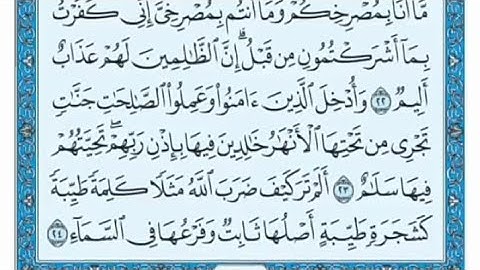 مَّآ أَنَا۠ بِمُصْرِخِكُمْ وَمَآ أَنتُم بِمُصْرِخِىَّ إِنِّى كَفَرْتُ
بِمَآ أَشْرَكْتُمُونِ مِن قَبْلُ ۗ إِنَّ ٱلظَّٰلِمِينَ لَهُمْ عَذَابٌ
أَلِيمٌ ٢٢ وَأُدْخِلَ ٱلَّذِينَ ءَامَنُوا۟ وَعَمِلُوا۟ ٱلصَّٰلِحَٰتِ جَنَّٰتٍ
تَجْرِى مِن تَحْتِهَا ٱلْأَنْهَٰرُ خَٰلِدِينَ فِيهَا بِإِذْنِ رَبِّهِمْ ۖ تَحِيَّتُهُمْ
فِيهَا سَلَٰمٌ ٢٣ أَلَمْ تَرَ كَيْفَ ضَرَبَ ٱللَّهُ مَثَلًا كَلِمَةً طَيِّبَةً
كَشَجَرَةٍ طَيِّبَةٍ أَصْلُهَا ثَابِتٌ وَفَرْعُهَا فِى ٱلسَّمَآءِ ٢٤